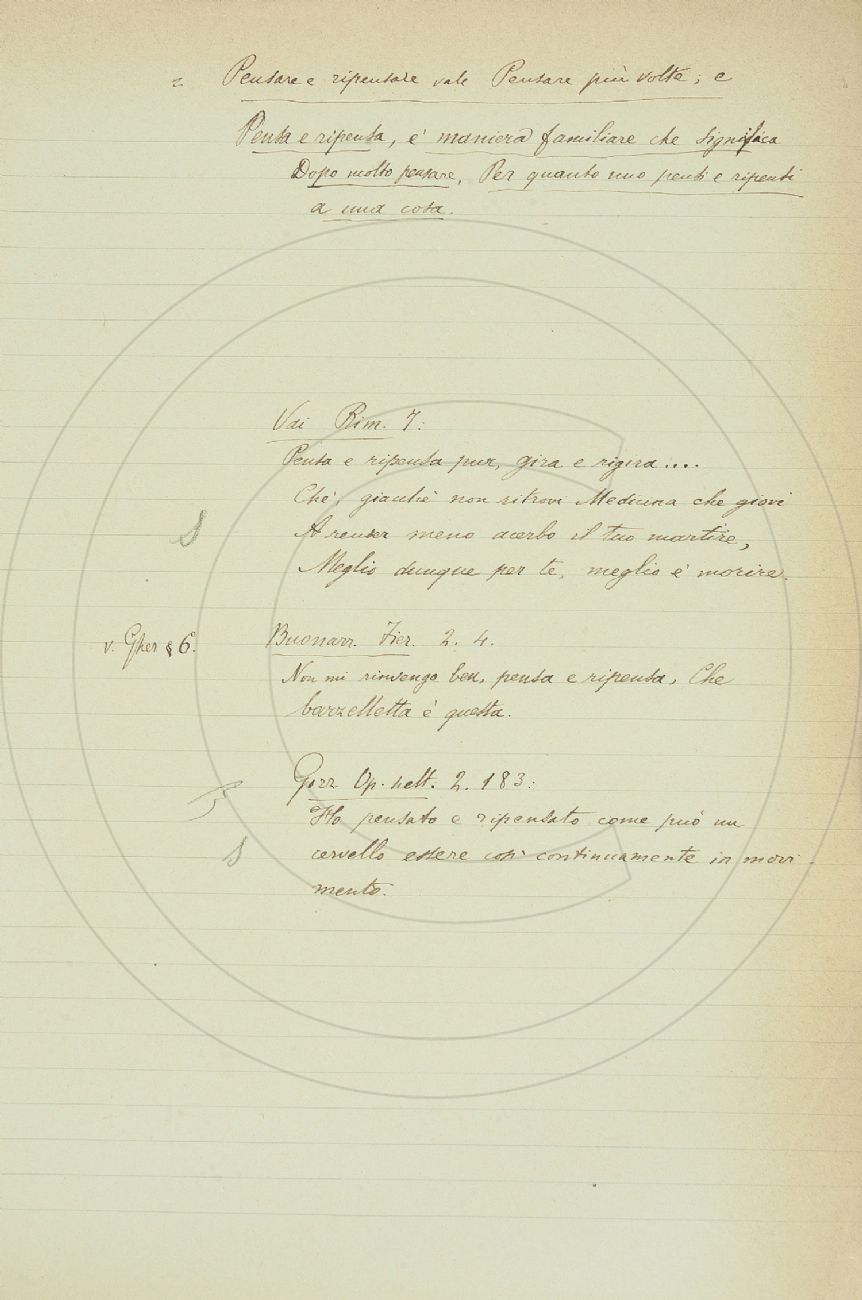 = Pensare e ripensare vale Pensare più volte; e
Pensa e ripensa, è maniera familiare che significa
Dopo molto pensare, Per quanto uno pensi e ripensi
a una cosa.
Vai Rim. 7:
Pensa e ripensa pur, gira e rigira....
Chè, giacchè non ritrovi Medicina che giovi
A render meno acerbo il tuo martire,
Meglio dunque per te, meglio è morire.
S
v. Gher § 6º.
Buonarr. Fier. 2. 4.
Non mi rinvengo ben, pensa e ripensa, Che
barzelletta è questa.
Gozz. Op. scelt. 2. 183:
Ho pensato e ripensato come può un
S
cervello essere così continuamente in movi
mento.